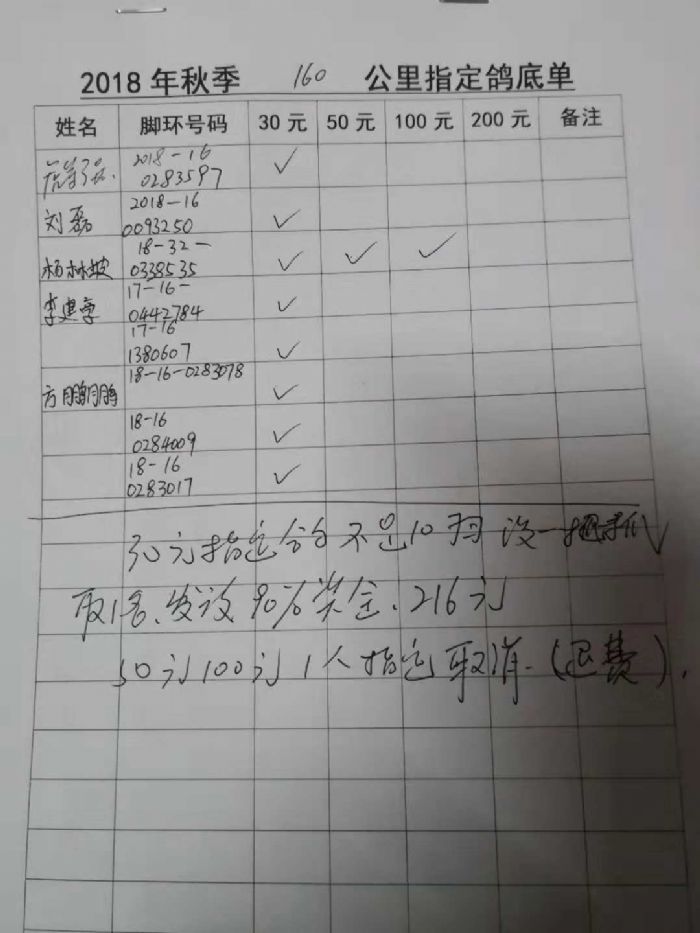 2018年秋季 160 公里指定鸽底单
姓名 脚环号码 30元 50元 100元 200元 备注
2018-16
0283597 ✓
2018-16
刘磊 0093250 ✓
18-32-
杨林坡 0338535 ✓ ✓ ✓
17-16-
李建 0442784 ✓
17-16
1380607 ✓
18-16-0283078
方鹏鹏 ✓
18-16
0284009 ✓
18-16
0283017 ✓
30元指定鸽不足10羽 没一
取1名、发放90%奖金、216元
50元100元1人指定取消.(退费).